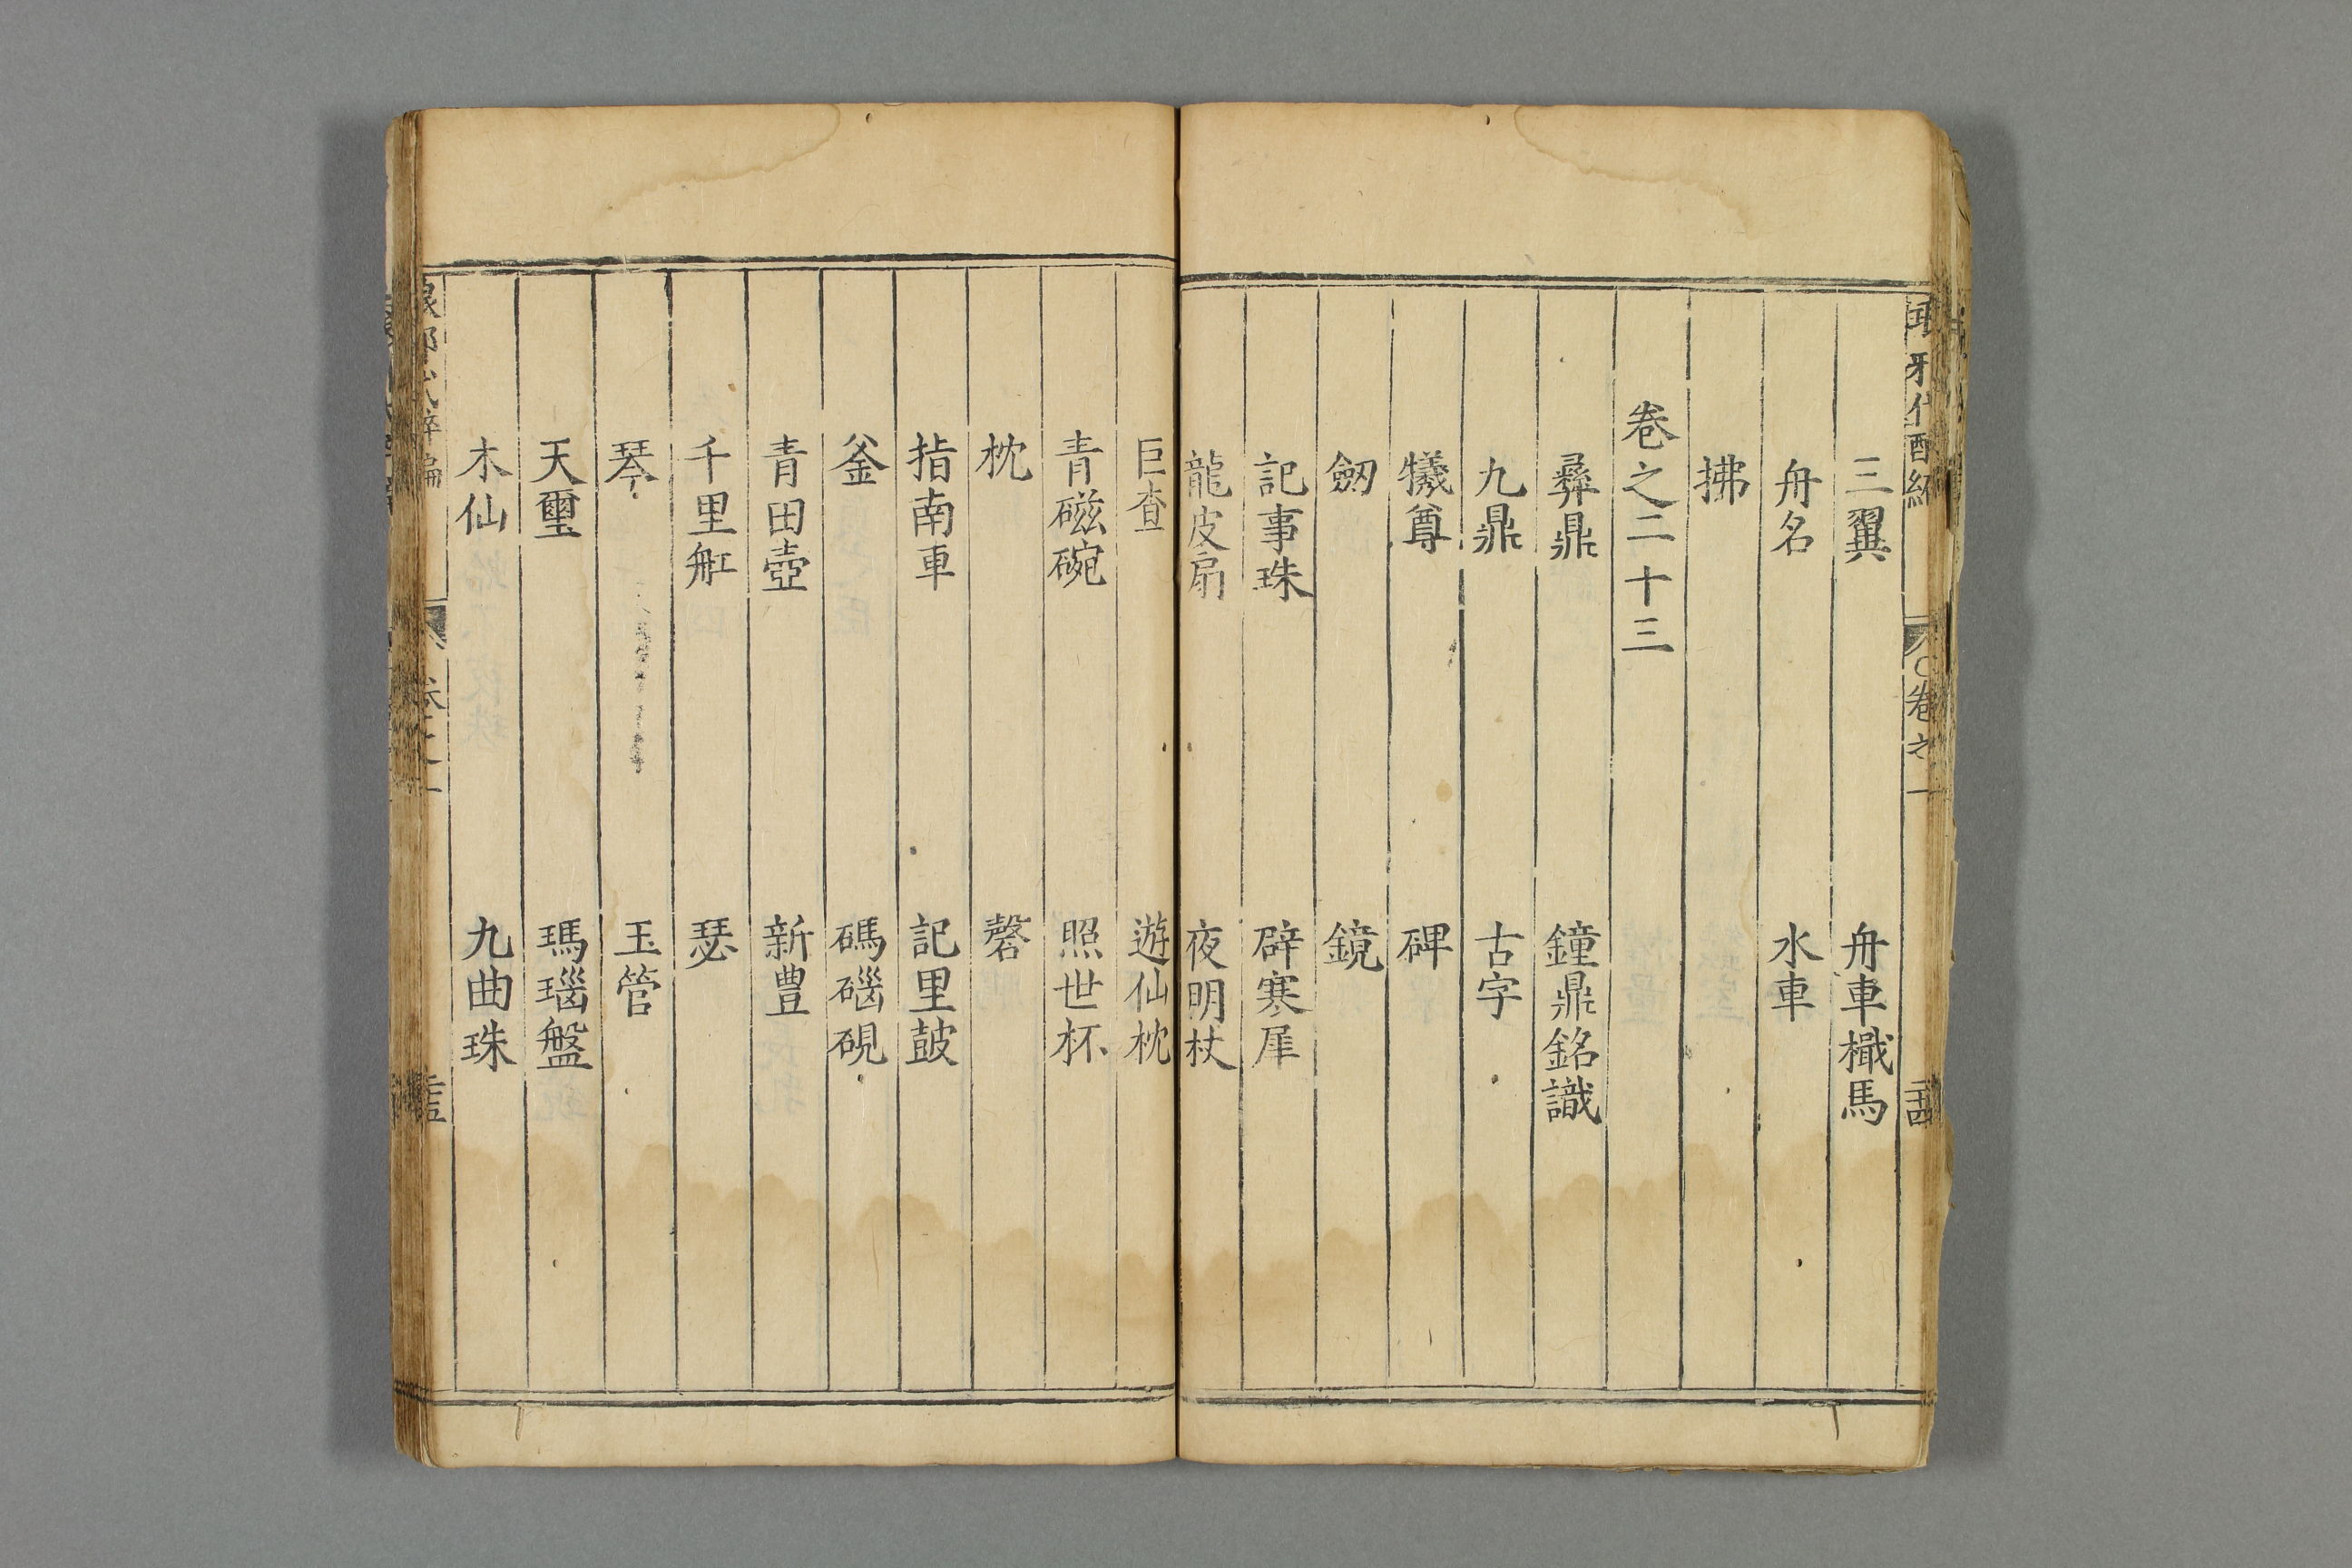 三翼 舟車檝馬
舟名 水車
拂
卷之二十三
彝鼎 鐘鼎銘識
九鼎 古字
犧尊 碑
劒 鏡
記事珠 辟寒犀
龍皮扇 夜明杖
巨査 遊仙枕
青磁碗 照世杯
枕 磬
指南車 記里鼓
釜 碼碯硯
青田壺 新豊
千里舡 瑟
琴 玉管
天璽 瑪瑙盤
木仙 九曲珠
卷之一